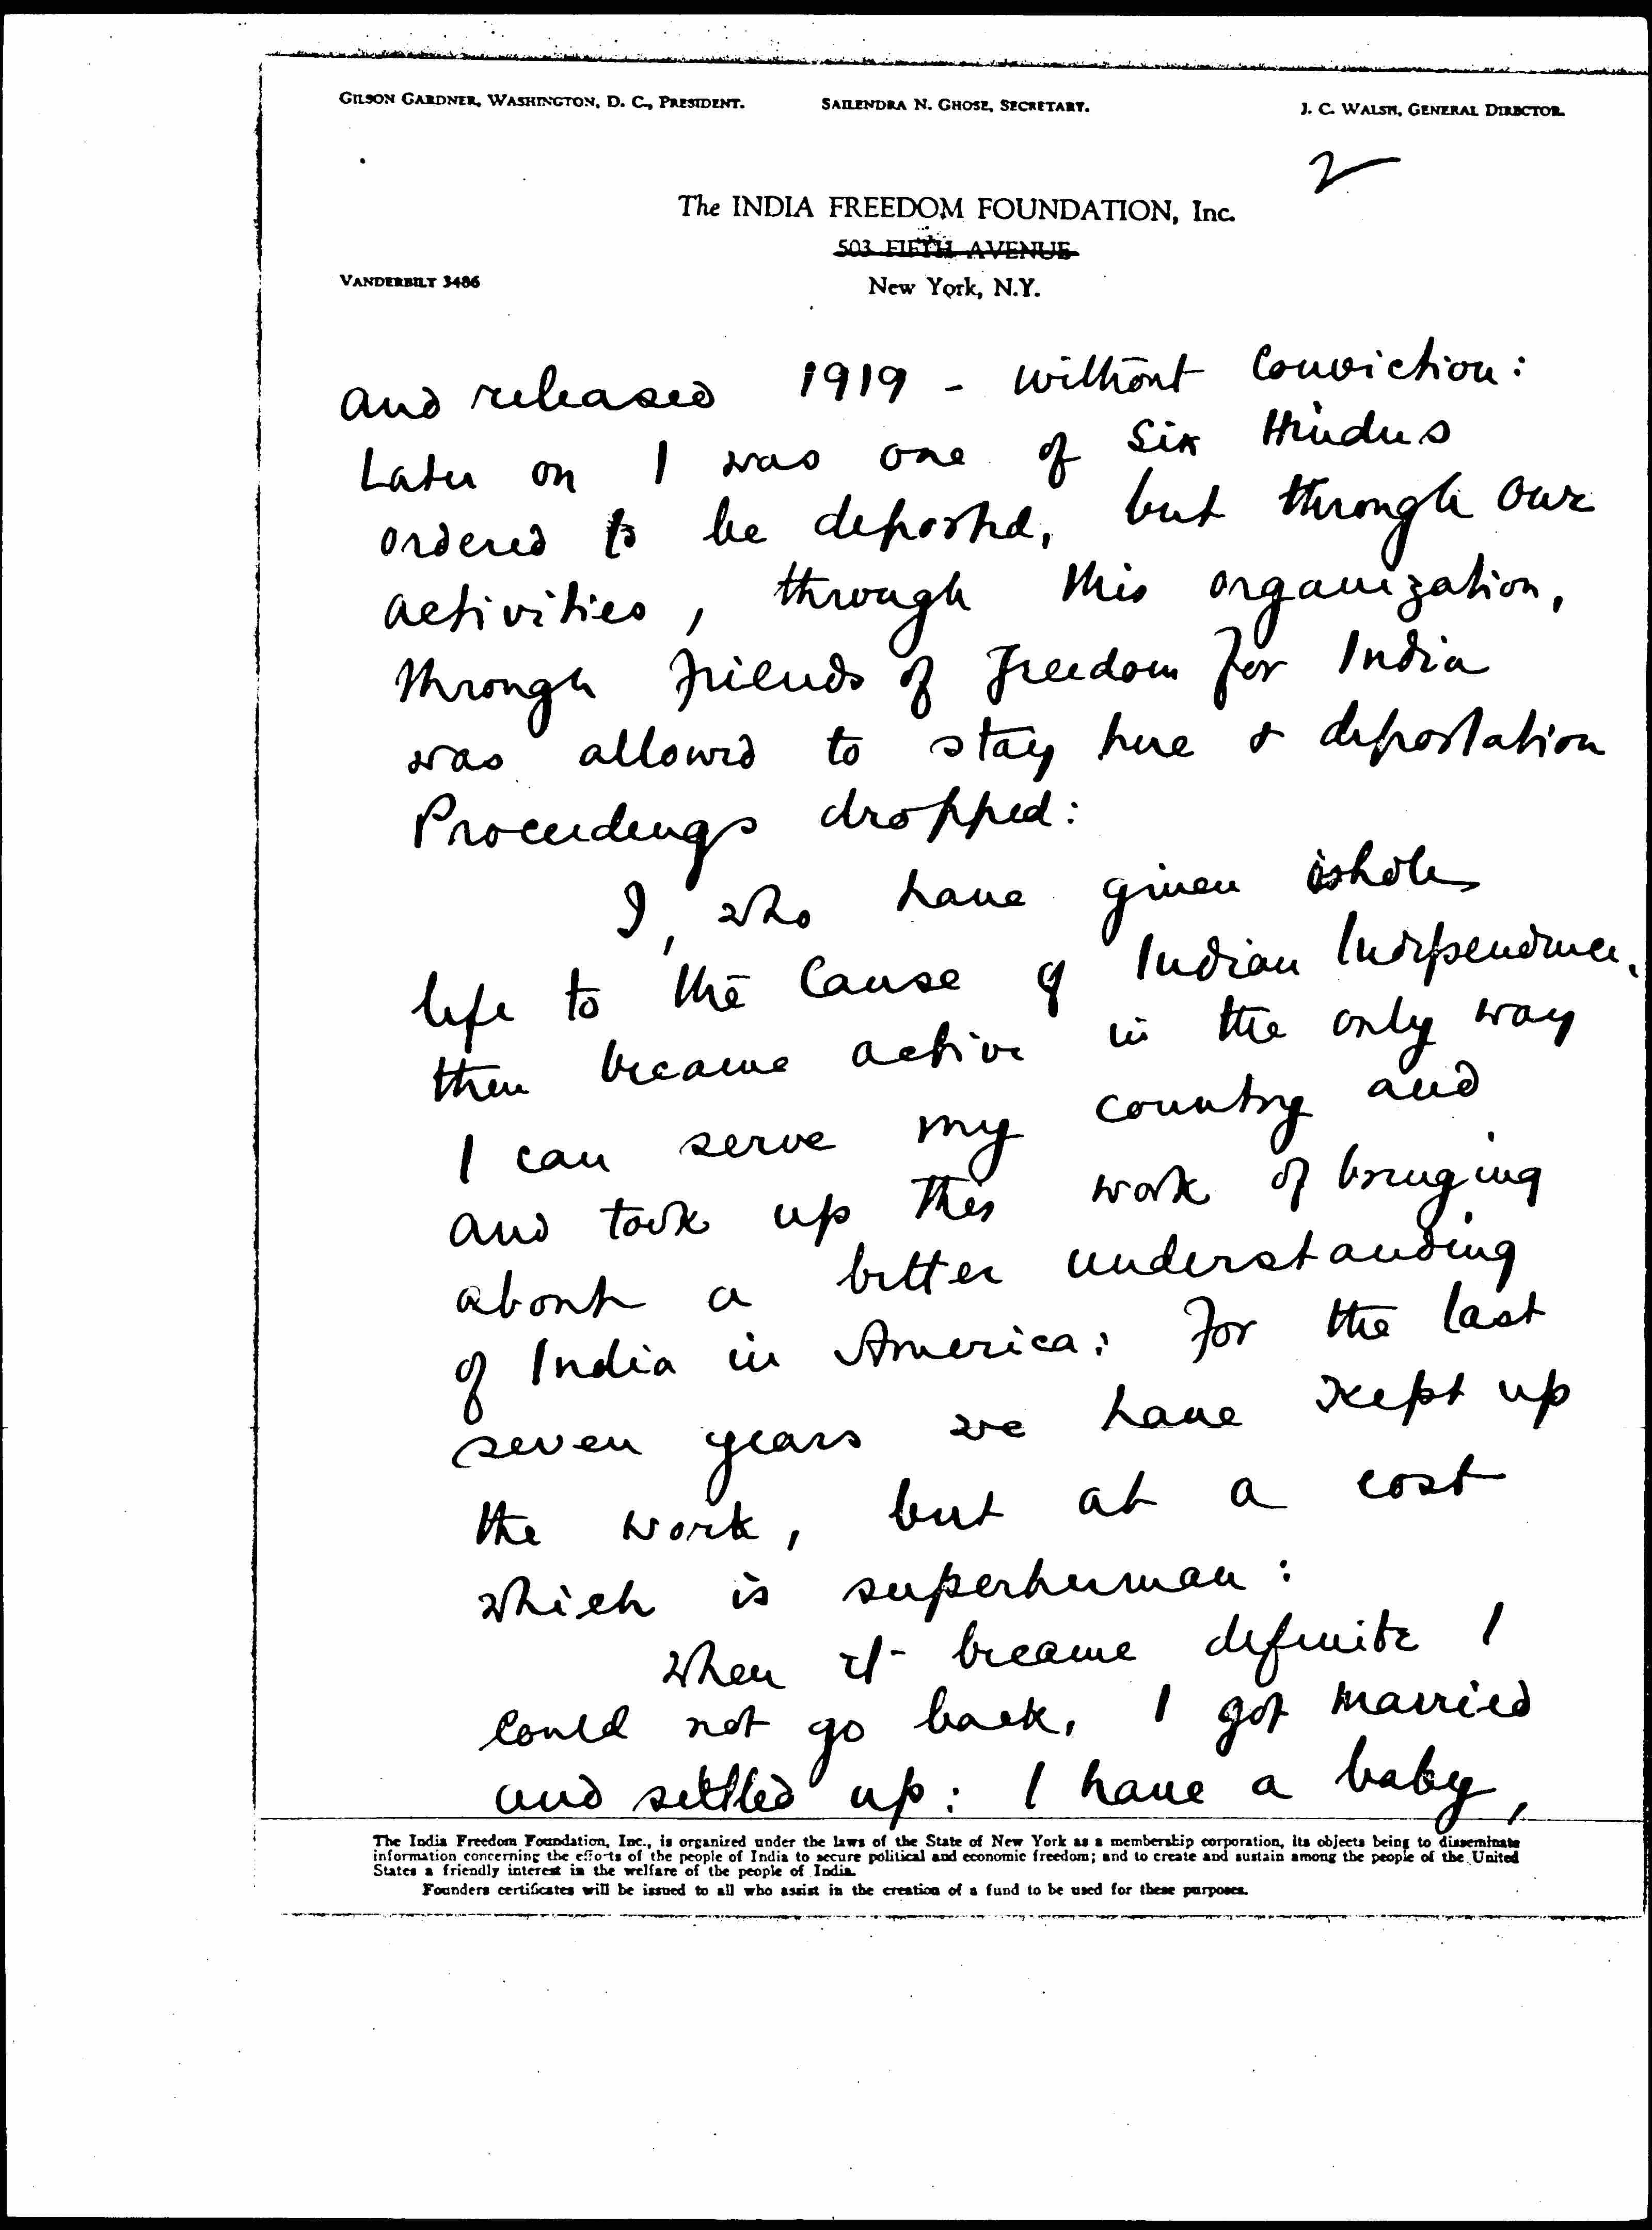 GILSON GARDNER, WASHINGTON, D. C., PRESIDENT. SAILENDRA N. GHOSE, SECRETARY. J. C. WALSH, GENERAL DIRECTOR.
2
The INDIA FREEDOM FOUNDATION, Inc.
503 FIFTH AVENUE
VANDERBILT 3486 New York, N.Y.
and released 1919 - without conviction:
Later on I was one of six Hindus
ordered to be deported, but through our
activities, through this organization,
through Friends of Freedom for India
was allowed to stay here & deportation
Proceedings dropped:
I, who have given whole
life to the cause of Indian Independence,
then became active in the only way
I can serve my country and
and took up this work of bringing
about a better understanding
of India in America: For the last
seven years we have kept up
the work, but at a cost
which is superhuman:
When it became definite I
could not go back, I got married
and settled up: I have a baby,
The India Freedom Foundation, Inc., is organized under the laws of the State of New York as a membership corporation, its objects being to disseminate
information concerning the efforts of the people of India to secure political and economic freedom; and to create and sustain among the people of the United
States a friendly interest in the welfare of the people of India.
Founders certificates will be issued to all who assist in the creation of a fund to be used for these purposes.